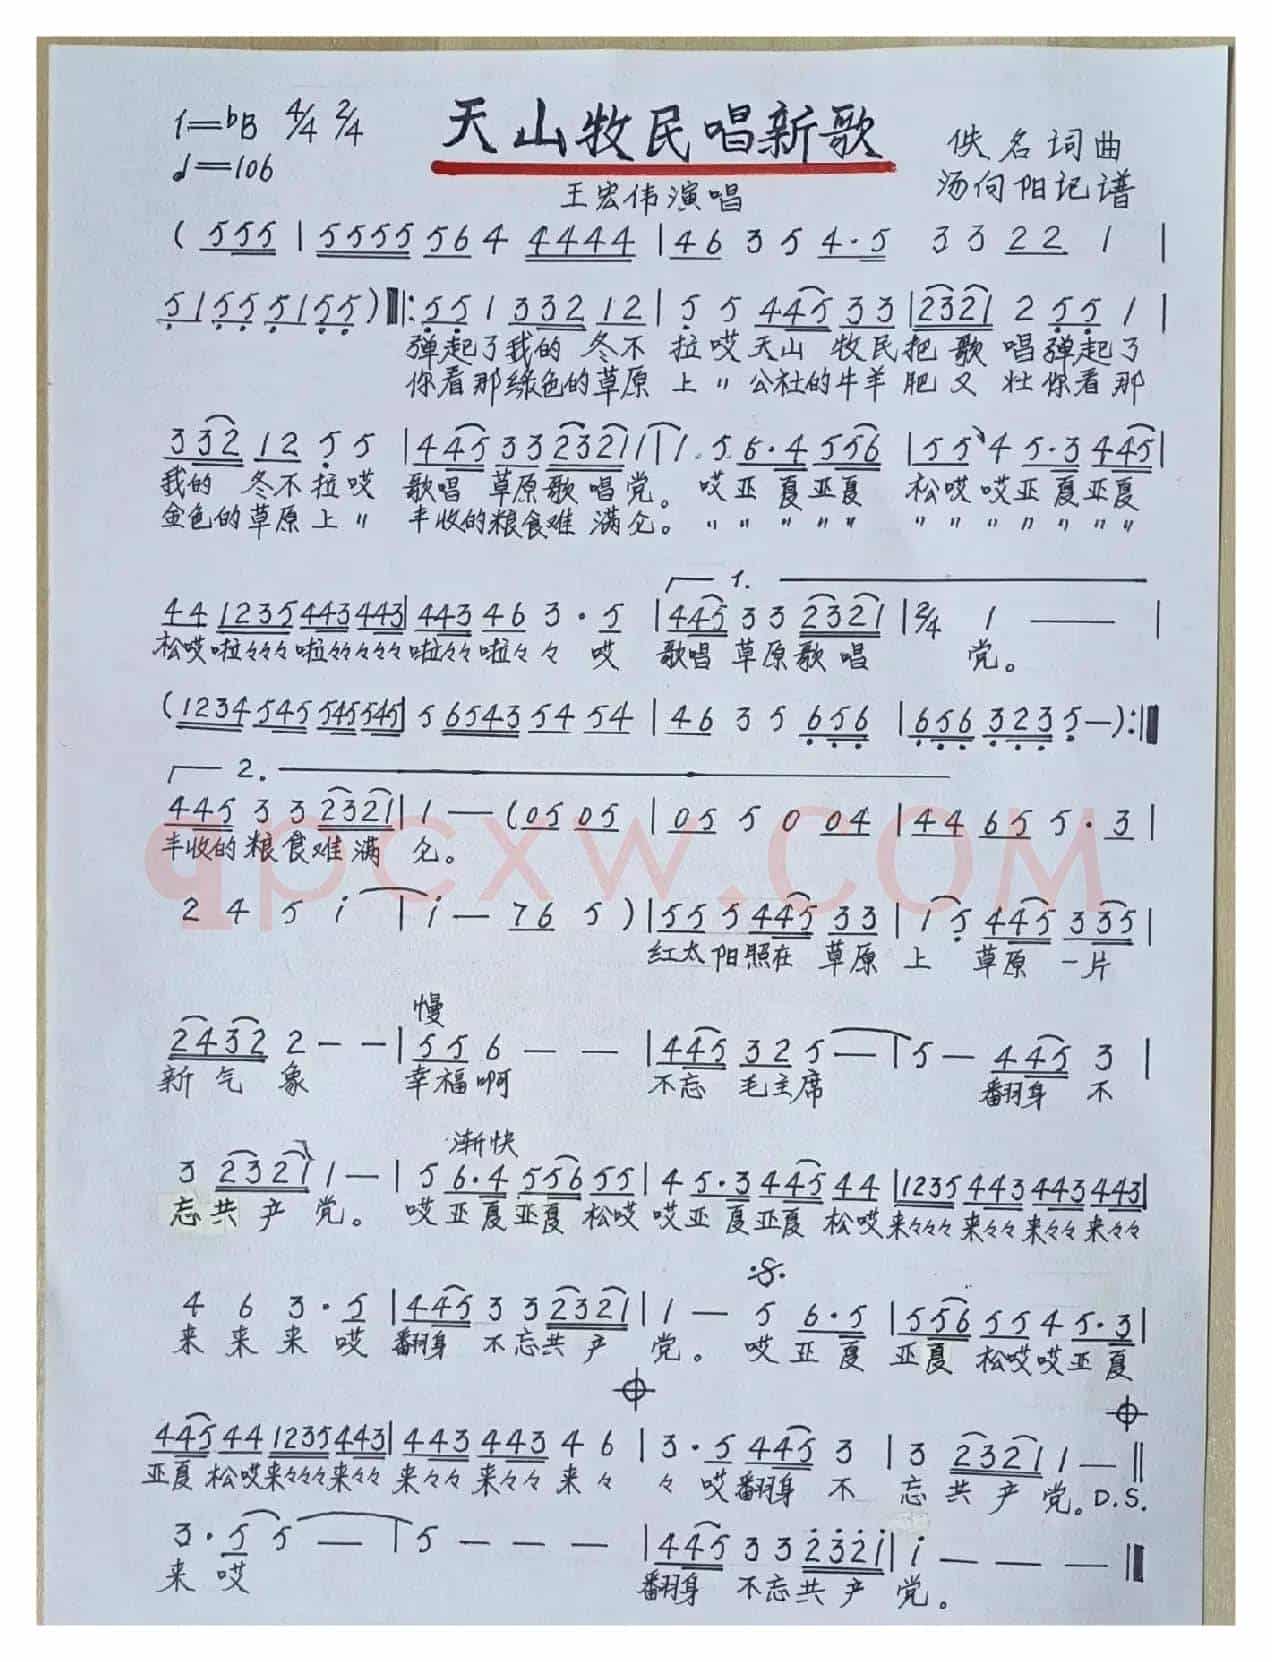 1=bB 4/4 2/4
♩=106
天山牧民唱新歌
佚名词曲
汤向阳记谱
王宏伟演唱
( 555 | 5555 56 4 4444 | 46 3 5 4·5 3 3 22 1 |
5155 5155 ) ‖: 55 1 332 12 | 5 5 445 33 | 2321 2 55 1 |
弹起了我的 冬不 拉哎天山 牧民把 歌 唱弹起了
你看那绿色的草原 上 〃 公社的牛羊 肥 又 壮你看那
332 12 5 5 | 445 33 2321 1 | 1. 5 6·4 556 | 55 4 5·3 445 |
我的 冬不拉哎 歌唱 草原歌唱党。 哎亚 夏亚夏 松哎哎亚夏亚夏
金色的草原上 〃 丰收的粮食难 满仑。 〃 〃 〃 〃 〃 〃 〃 〃 〃 〃 〃 〃
1.
44 1235 443 443 | 443 46 3 · 5 | 445 3 3 2321 | 2/4 1 — |
松哎啦々々々啦々々々々 啦々々啦々 々 哎 歌唱 草原歌 唱 党。
(1234 545 545 545 | 5 6543 54 54 | 46 3 5 656 | 656 323 5 — ) :‖
2.
445 3 3 2321 | 1 — (05 05 | 05 5 0 04 | 44 65 5 · 3 |
丰收的粮食难满 仑。
2 4 5 i | i — 76 5 ) | 55 5 445 33 | 1 5 445 335 |
红太 阳照在 草原 上 草原 一片
慢
2432 2 - - | 55 6 — — | 445 32 5 — | 5 — 445 3 |
新气 象 幸福啊 不忘 毛主席 翻身 不
渐快
3 2321 1 — | 5 6·4 556 55 | 4 5·3 445 44 | 1235 443 443 443 |
忘共 产 党。 哎亚 夏亚夏 松哎 哎亚 夏亚夏 松哎来々々々来々々来々々来々々
4 6 3 · 5 | 445 3 3 2321 | 1 — 5 6·5 | 556 55 4 5·3 |
来 来 来 哎 翻身 不忘共 产 党。 哎 亚 夏 亚夏 松哎哎亚夏
445 44 1235 443 | 443 443 4 6 | 3 · 5 445 3 | 3 2321 1 — ‖
亚夏 松哎来々々々来々々 来々々来々々 来 々 々 哎翻身 不 忘 共 产 党。D.S.
3 · 5 5 — | 5 — — — | 445 3 3 2321 | i — — — ‖
来 哎 翻身 不忘共 产 党。
qpcxw.com